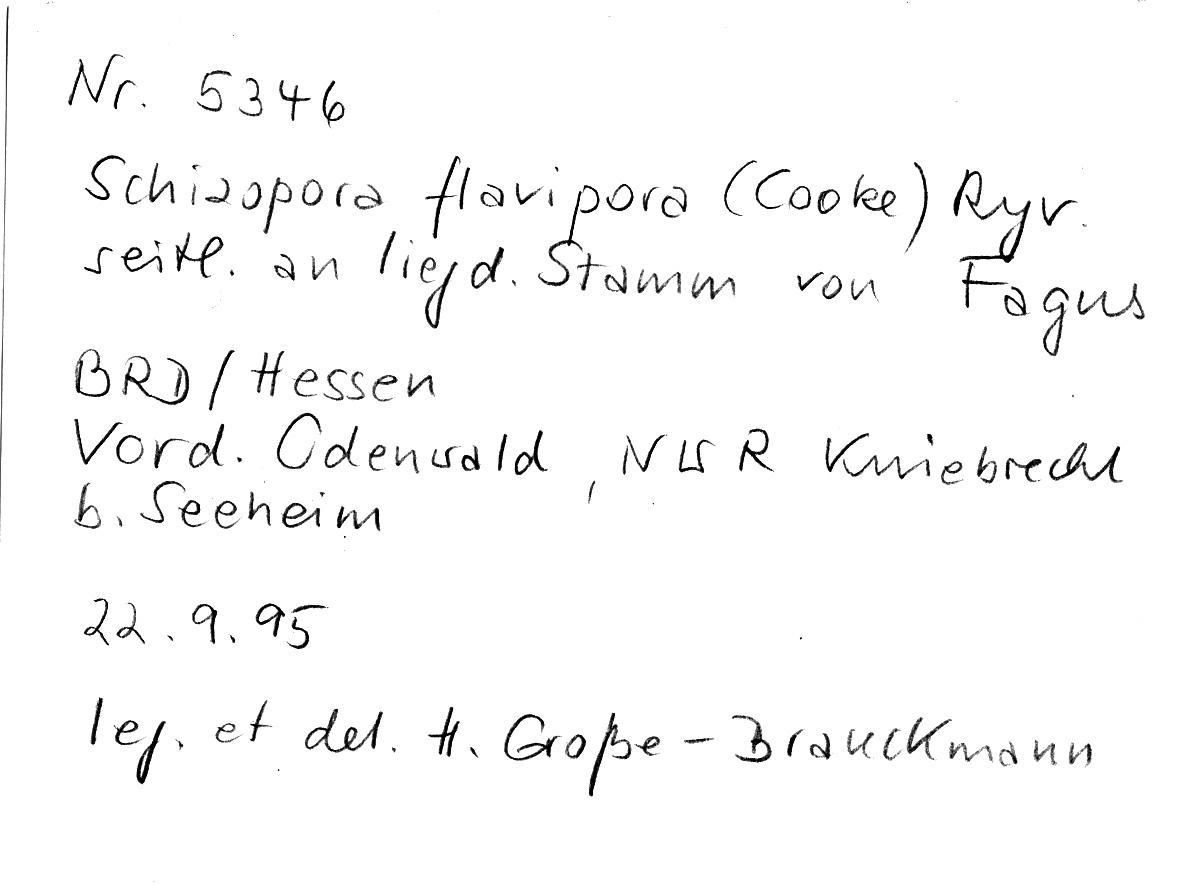 Nr. 5346
Schizopora flavipora (Cooke) Ryv.
seitl. an liegd. Stamm von Fagus
BRD/Hessen
Vord. Odenwald, NWR Kniebrecht
b. Seeheim
22.9.95
leg. et det. H. Große-Brauckmann